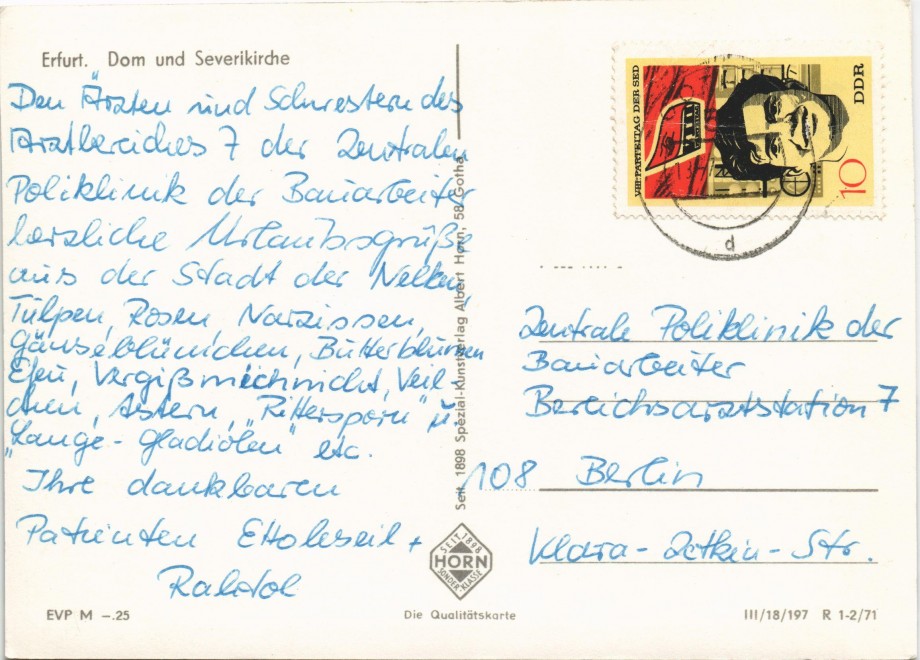 Erfurt. Dom und Severikirche
Den Ärzten und Schwestern des
Arztbereiches 7 der Zentralen
Poliklinik der Bauarbeiter
herzliche Urlaubsgrüße
aus der Stadt der Nelken,
Tulpen, Rosen, Narzissen,
Gänseblümchen, Butterblumen
Efeu, Vergißmeinnicht, Veil
chen, Astern, "Rittersporn" u.
"Lange-Gladiolen" etc.
Ihre dankbaren
Patienten +
EVP M –.25
Seit 1898 Spezial-Kunstverlag Albert Horn, 58 Gotha
SEIT 1898
HORN
SONDER-KLASSE
Die Qualitätskarte
VIII. PARTEITAG DER SED
DDR
10
d
Zentrale Poliklinik der
Bauarbeiter
Bereichsarztstation 7
108 Berlin
Klara-Zetkin-Str.
III/18/197 R 1-2/71